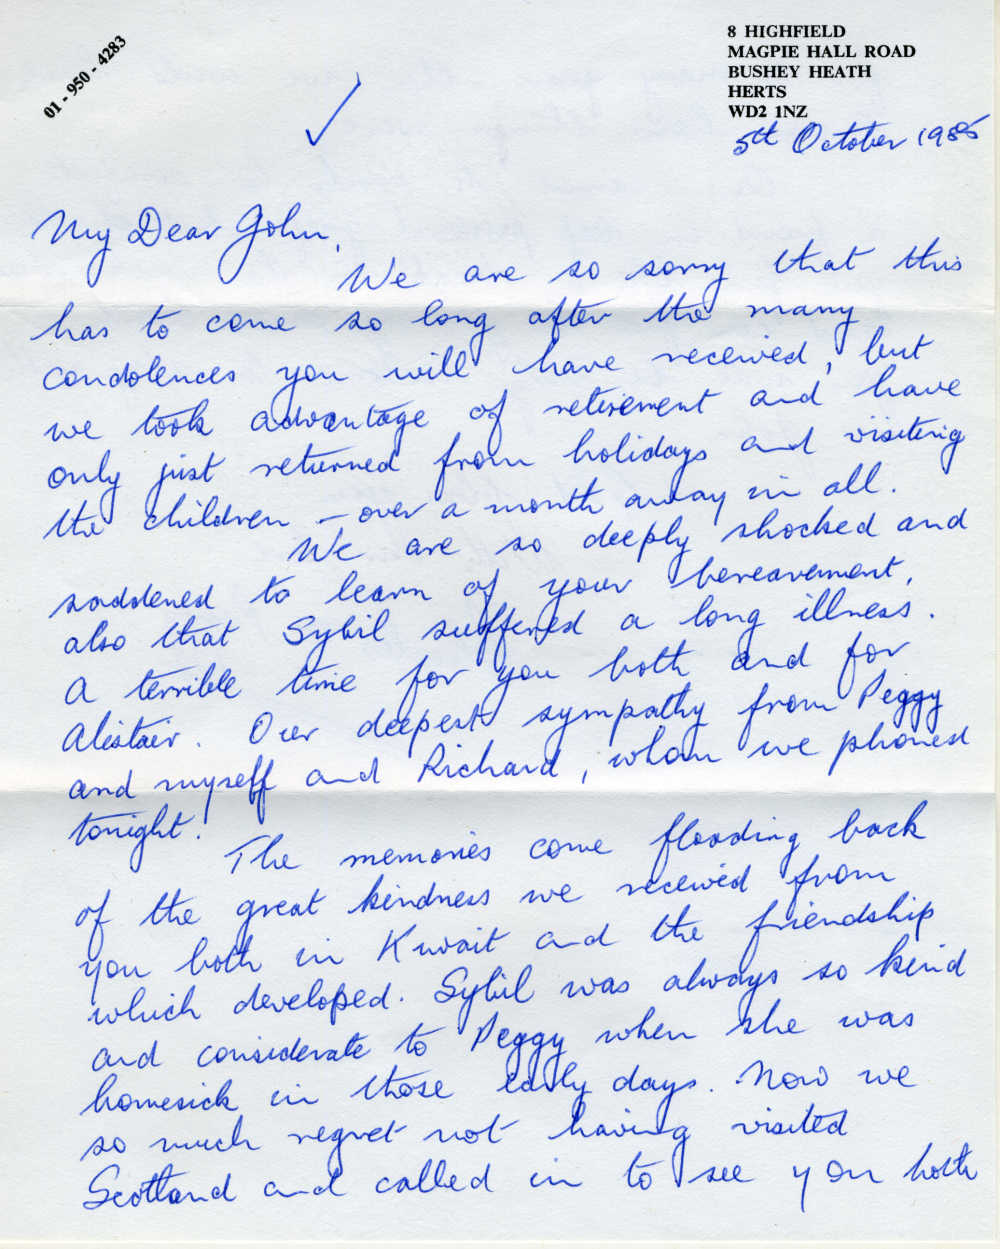 01 - 950 - 4283
8 HIGHFIELD
MAGPIE HALL ROAD
BUSHEY HEATH
HERTS
WD2 1NZ
5th October 1985
My Dear John,
We are so sorry that this
has to come so long after the many
condolences you will have received, but
we took advantage of retirement and have
only just returned from holidays and visiting
the children – over a month away in all.
We are so deeply shocked and
saddened to learn of your bereavement,
also that Sybil suffered a long illness.
A terrible time for you both and for
Alistair. Our deepest sympathy from Peggy
and myself and Richard, whom we phoned
tonight!
The memories come flooding back
of the great kindness we received from
you both in Kuwait and the friendship
which developed. Sybil was always so kind
and considerate to Peggy when she was
homesick in those early days. Now we
so much regret not having visited
Scotland and called in to see you both